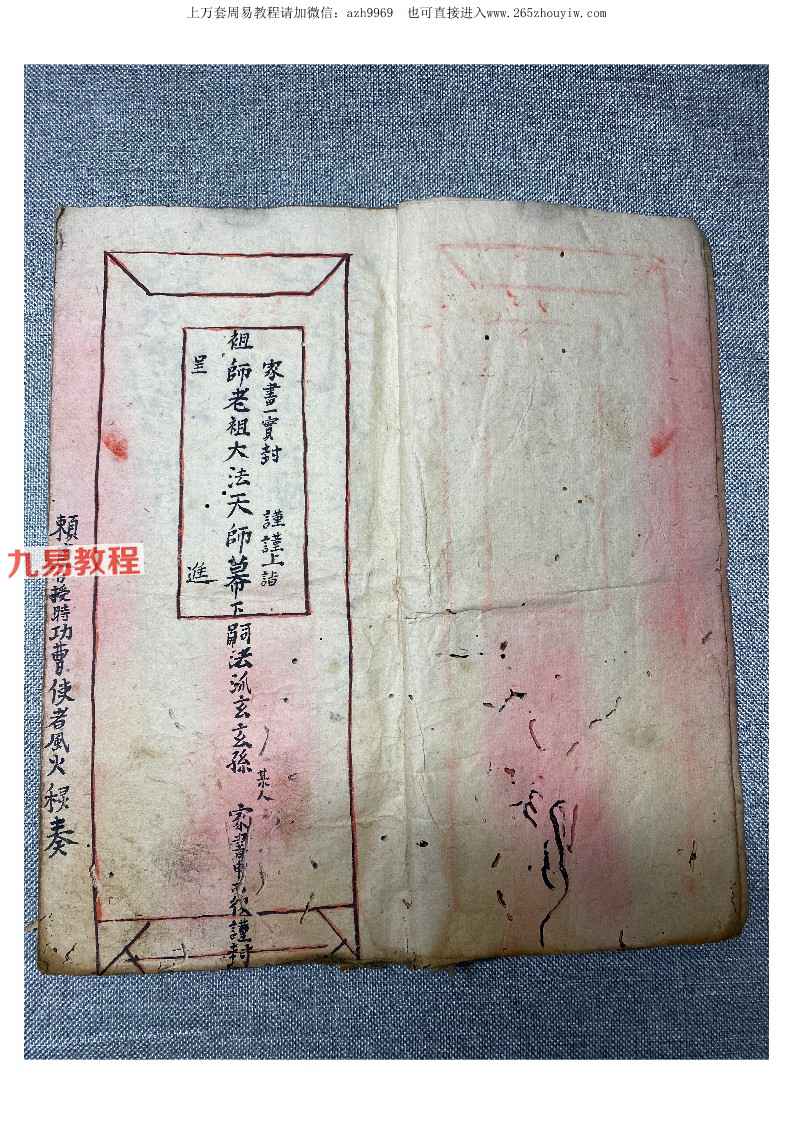 上万套周易教程请加微信：azh9969 也可直接进入www.265zhouyiw.com
家書一實封 謹謹上詣
祖師老祖大法天師幕下嗣法派玄玄孫 某人 家書申 謹封
呈 進
九易教程
頼 授時功曹使者風火 奏